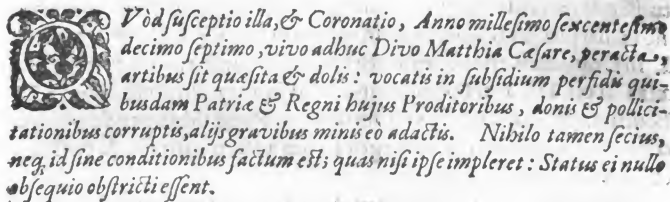 QVòd ſuſceptio illa, & Coronatio, Anno milleſimo ſexcenteſimo
decimo ſeptimo, vivo adhuc Divo Matthia Cæſare, peracta,
artibus ſit quæſita & dolis: vocatis in ſubſidium perfidis qui-
busdam Patriæ & Regni hujus Proditoribus, donis & pollici-
tationibus corruptis, alijs gravibus minis eò adactis. Nihilo tamen ſecius,
neq; id ſine conditionibus factum eſt; quas niſi ipſe impleret: Status ei nullo
obſequio obſtricti eſſent.